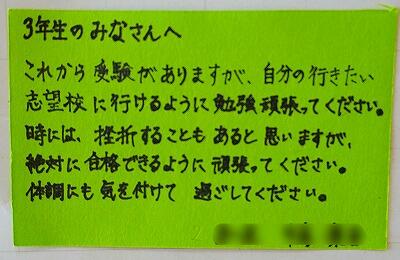 3年生のみなさんへ
これから受験がありますが、自分の行きたい
志望校に行けるように勉強頑張ってください。
時には、挫折することもあると思いますが、
絶対に合格できるように頑張ってください。
体調にも気を付けて 過ごしてください。